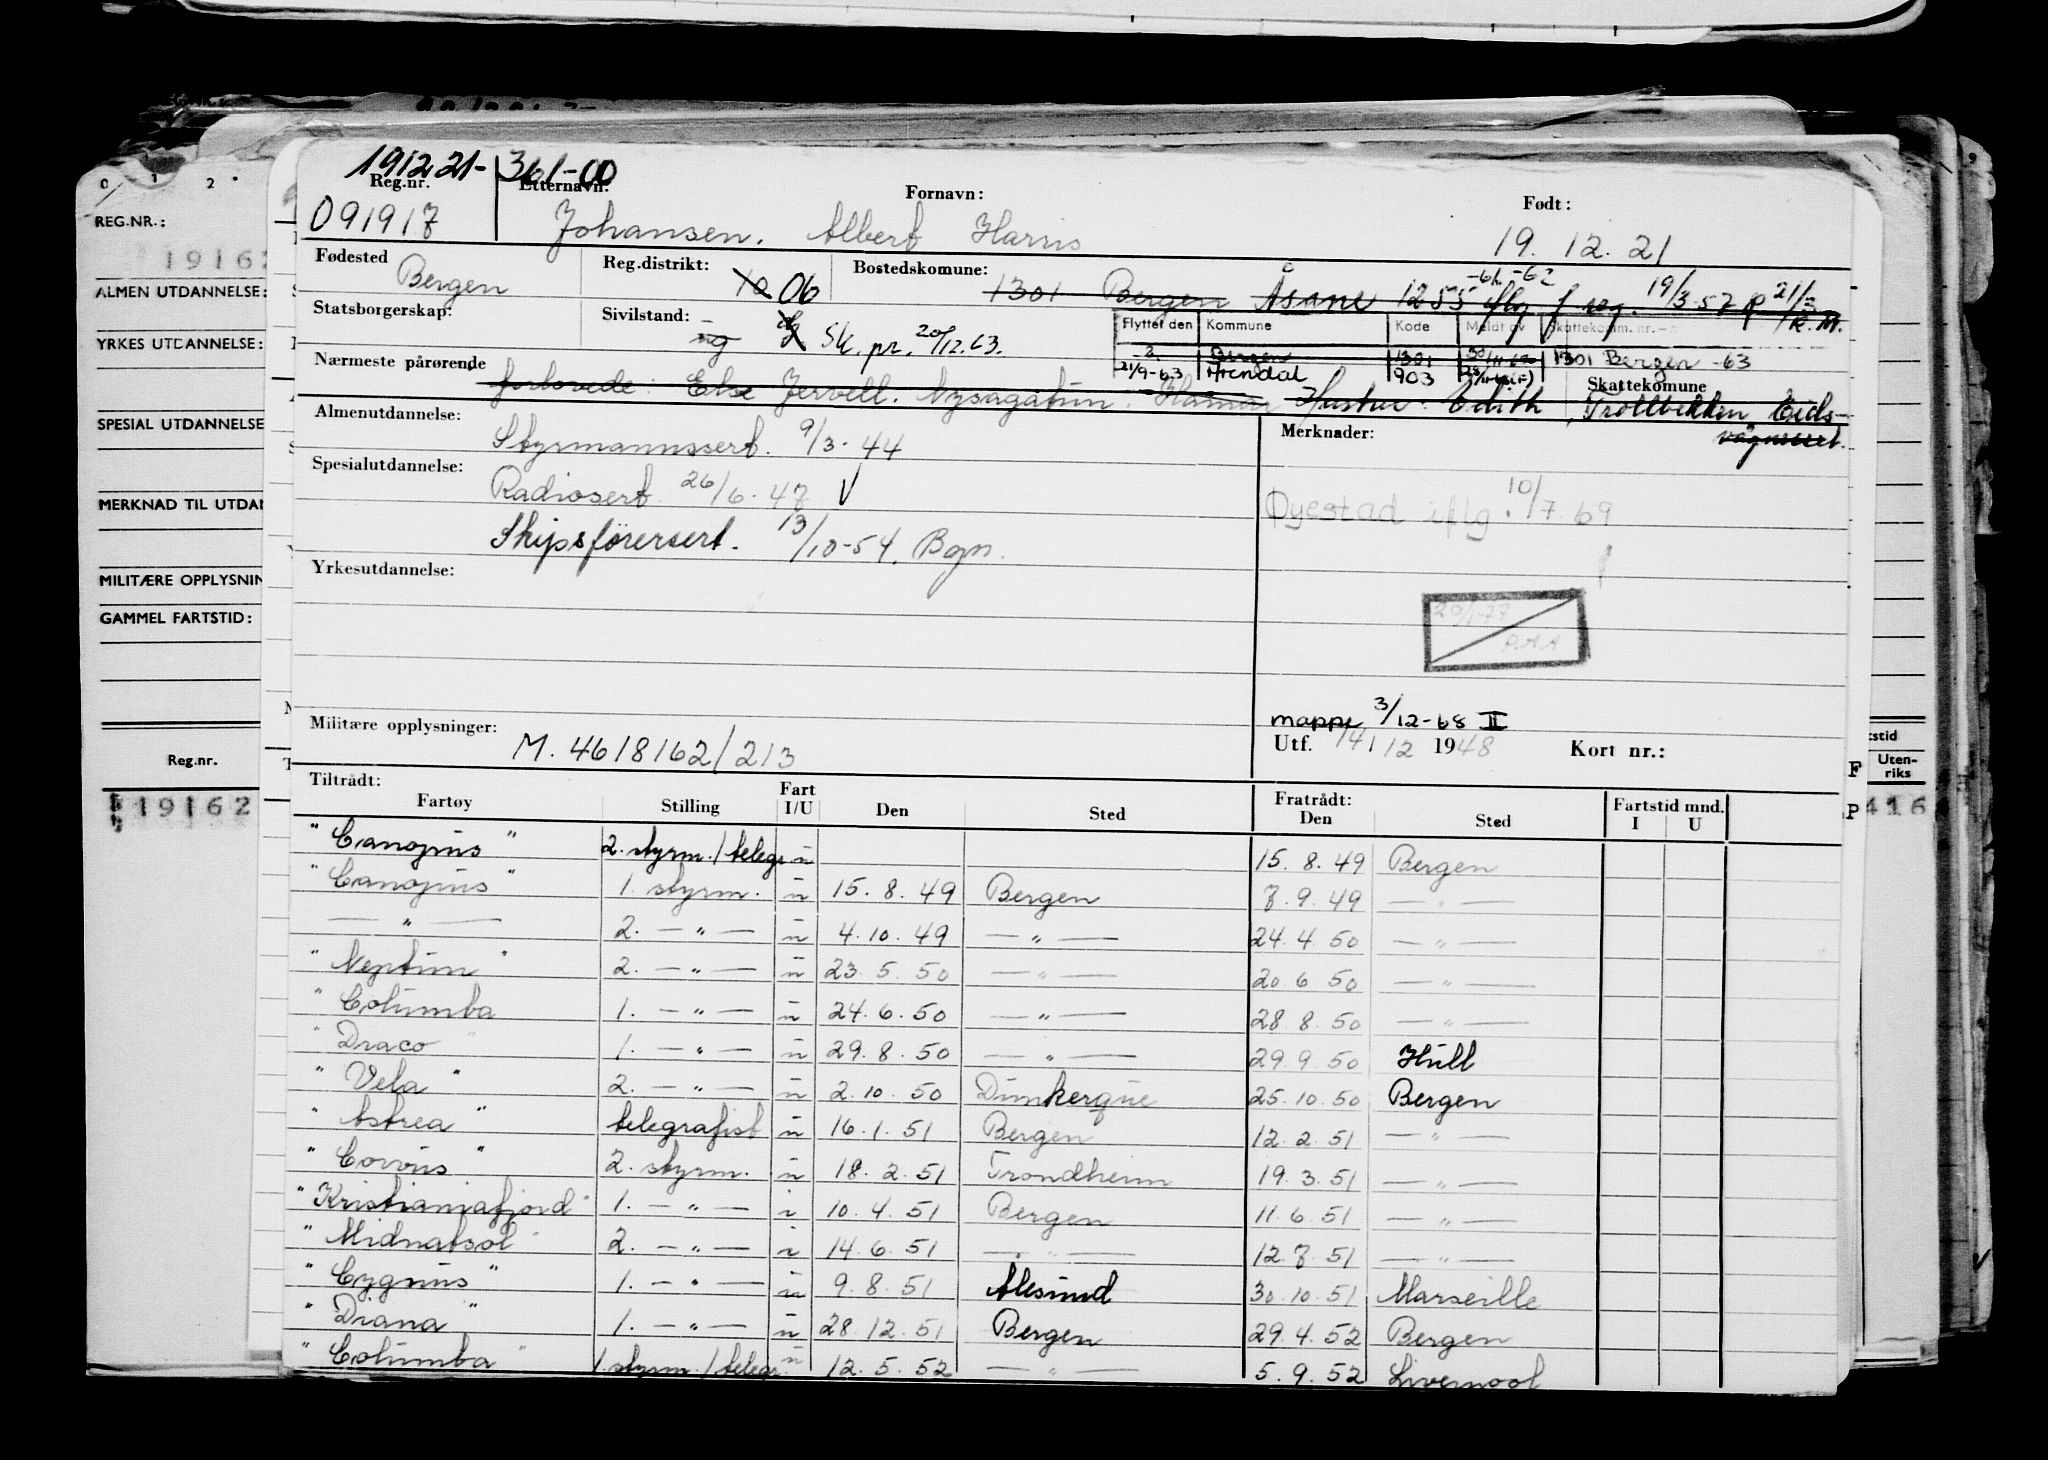 191221-361-00
Reg.nr. Etternavn: Fornavn: Født:
091917 Johansen. Albert Harris 19.12.21
Fødested Bergen Reg.distrikt: 10 06 Bostedskomune: 1301 Bergen Åsane 1255 -61-62 iflg f reg. 19/3-57 R 21/3 K.M.
Statsborgerskap: Sivilstand: ug g Sk. pr. 20/12.63.
Flyttet den Kommune Kode Meldt av Skattekomm. nr.
Bergen 1301 1301 Bergen -63
21/9-63 Arendal 903
Nærmeste pårørende forlovede: Else Jervell. Nysagatun. Hamar Hustru: Edith Skattekomune Trollbekken Eids-
vågneset.
Almenutdannelse: Styrmannssert. 9/3-44 Merknader:
Spesialutdannelse: Radiosert. 26/6-47 V
Øyestad iflg. 10/7.69
Skipsførersert. 13/10-54. Bgn.
Yrkesutdannelse:
20/1-77
P.A.A
mappe 3/12-68 II
Militære opplysninger: M. 4618162/213 Utf. 14/12 1948 Kort nr.:
Tiltrådt: Fratrådt:
Fartøy Stilling Fart I/U Den Sted Den Sted Fartstid mnd. I U
"Canopus" 2. styrm./telegr. u 15.8.49 Bergen
"Canopus" 1. styrm. u 15.8.49 Bergen 7.9.49 — " —
— " — 2. — " — u 4.10.49 — " — 24.4.50 — " —
"Neptun" 2. — " — u 23.5.50 — " — 20.6.50 — " —
"Columba 1. — " — u 24.6.50 — " — 28.8.50 — " —
"Draco" 1. — " — u 29.8.50 — " — 29.9.50 Hull
"Vela" 2. — " — u 2.10.50 Dunkerque 25.10.50 Bergen
"Astrea" telegrafist u 16.1.51 Bergen 12.2.51 — " —
"Corvus" 2. styrm. u 18.2.51 Trondheim 19.3.51 — " —
"Kristianiafjord" 1. — " — i 10.4.51 Bergen 11.6.51 — " —
"Midnatsol" 2. — " — i 14.6.51 — " — 12.7.51 — " —
"Cygnus" 1. — " — u 9.8.51 Ålesund 30.10.51 Marseille
"Diana" 1. — " — u 28.12.51 Bergen 29.4.52 Bergen
"Columba" 1. styrm./telegr. u 12.5.52 — " — 5.9.52 Liverpool
0 1 2
REG.NR.:
19162
ALMEN UTDANNELSE:
YRKES UTDANNELSE:
SPESIAL UTDANNELSE
MERKNAD TIL UTDAN
MILITÆRE OPPLYSNIN
GAMMEL FARTSTID:
Reg.nr.
19162
9
tstid
Uten-
riks
416
F
P